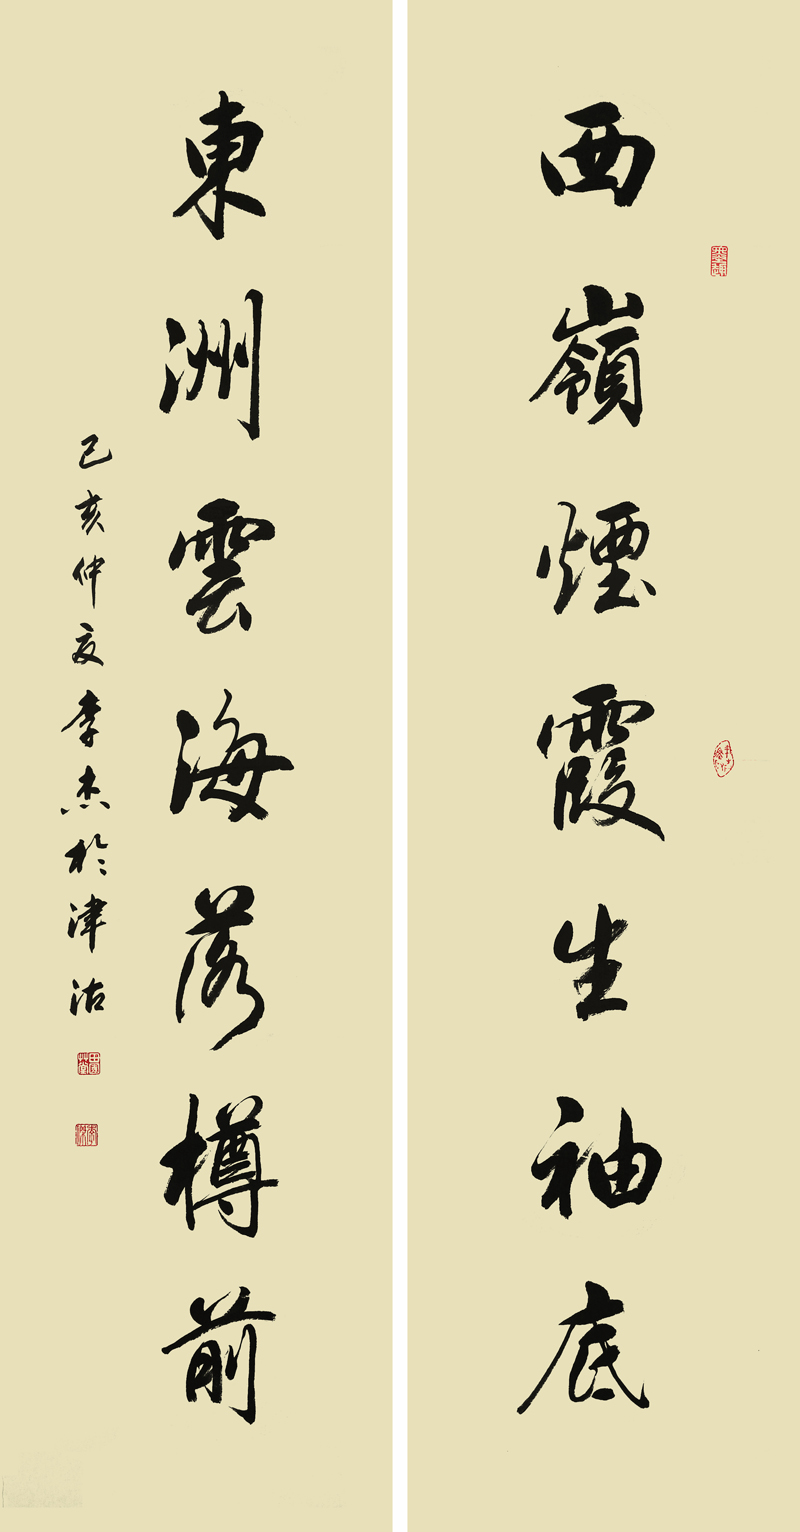 西嶺煙霞生袖底
東洲雲海落樽前
己亥仲夏李杰於津沽